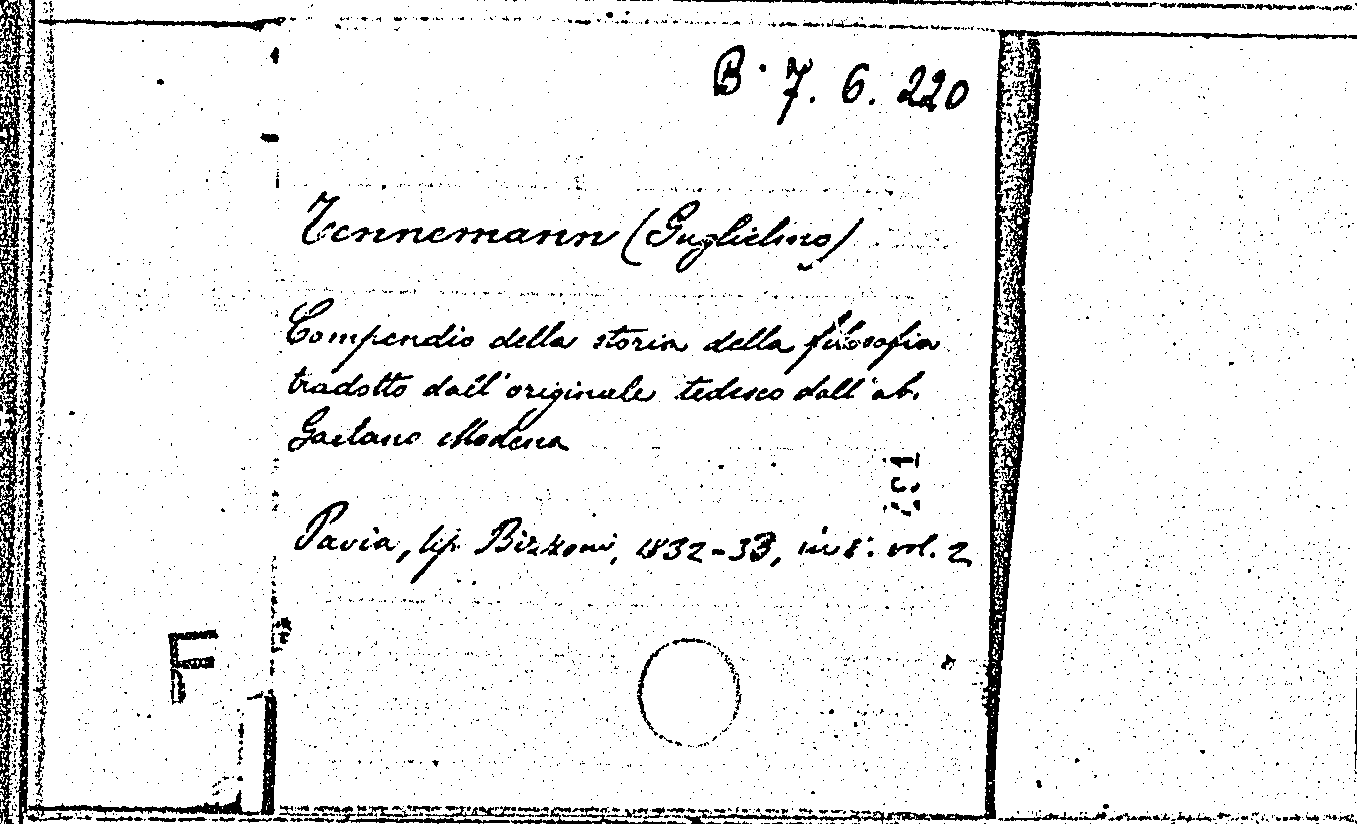 B. 7. 6. 220
Tennemann (Guglielmo)
Compendio della storia della filosofia
tradotto dall'originale tedesco dall'ab.
Gaetano Modena
Pavia, tip. Bizzoni, 1832-33, in 8°. vol. 2
F